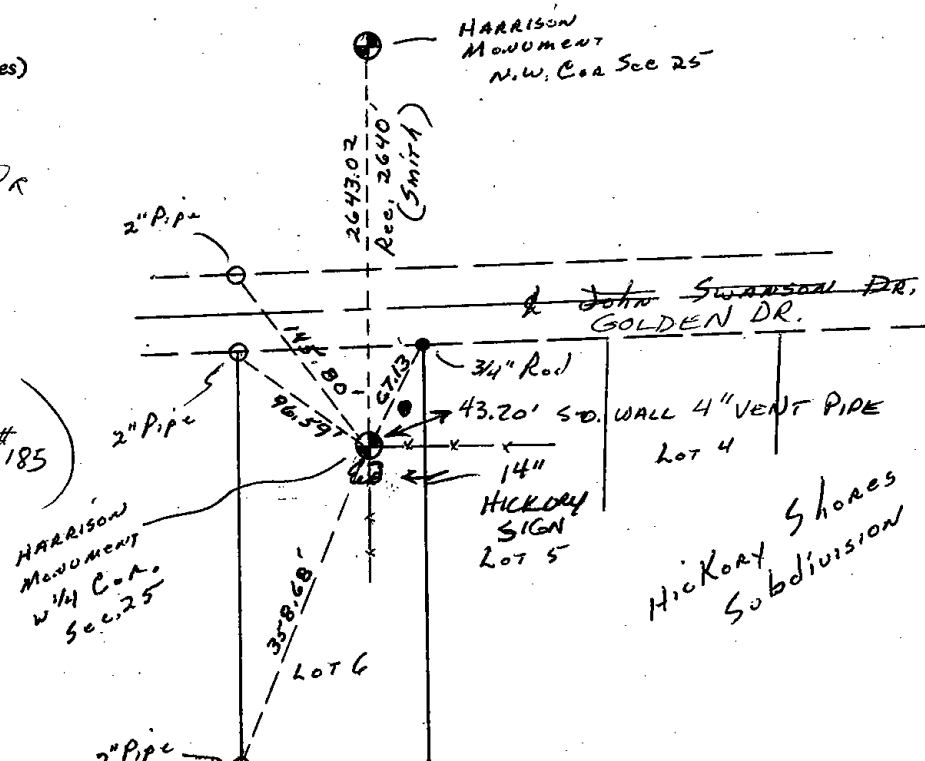 HARRISON
MONUMENT
N.W. COR SEC 25
es)
DR
2643.02
Rec. 2640'
(Smith)
2" Pipe
₵ ~~John Swanson DR.~~
GOLDEN DR.
145.80
67.13'
3/4" Rod
2" Pipe
96.59'
43.20' SO. WALL 4" VENT PIPE
LOT 4
#185
14"
HICKORY
SIGN
LOT 5
HARRISON
MONUMENT
W 1/4 COR.
Sec. 25
Hickory Shores
Subdivision
358.68'
LOT 6
2" Pipe